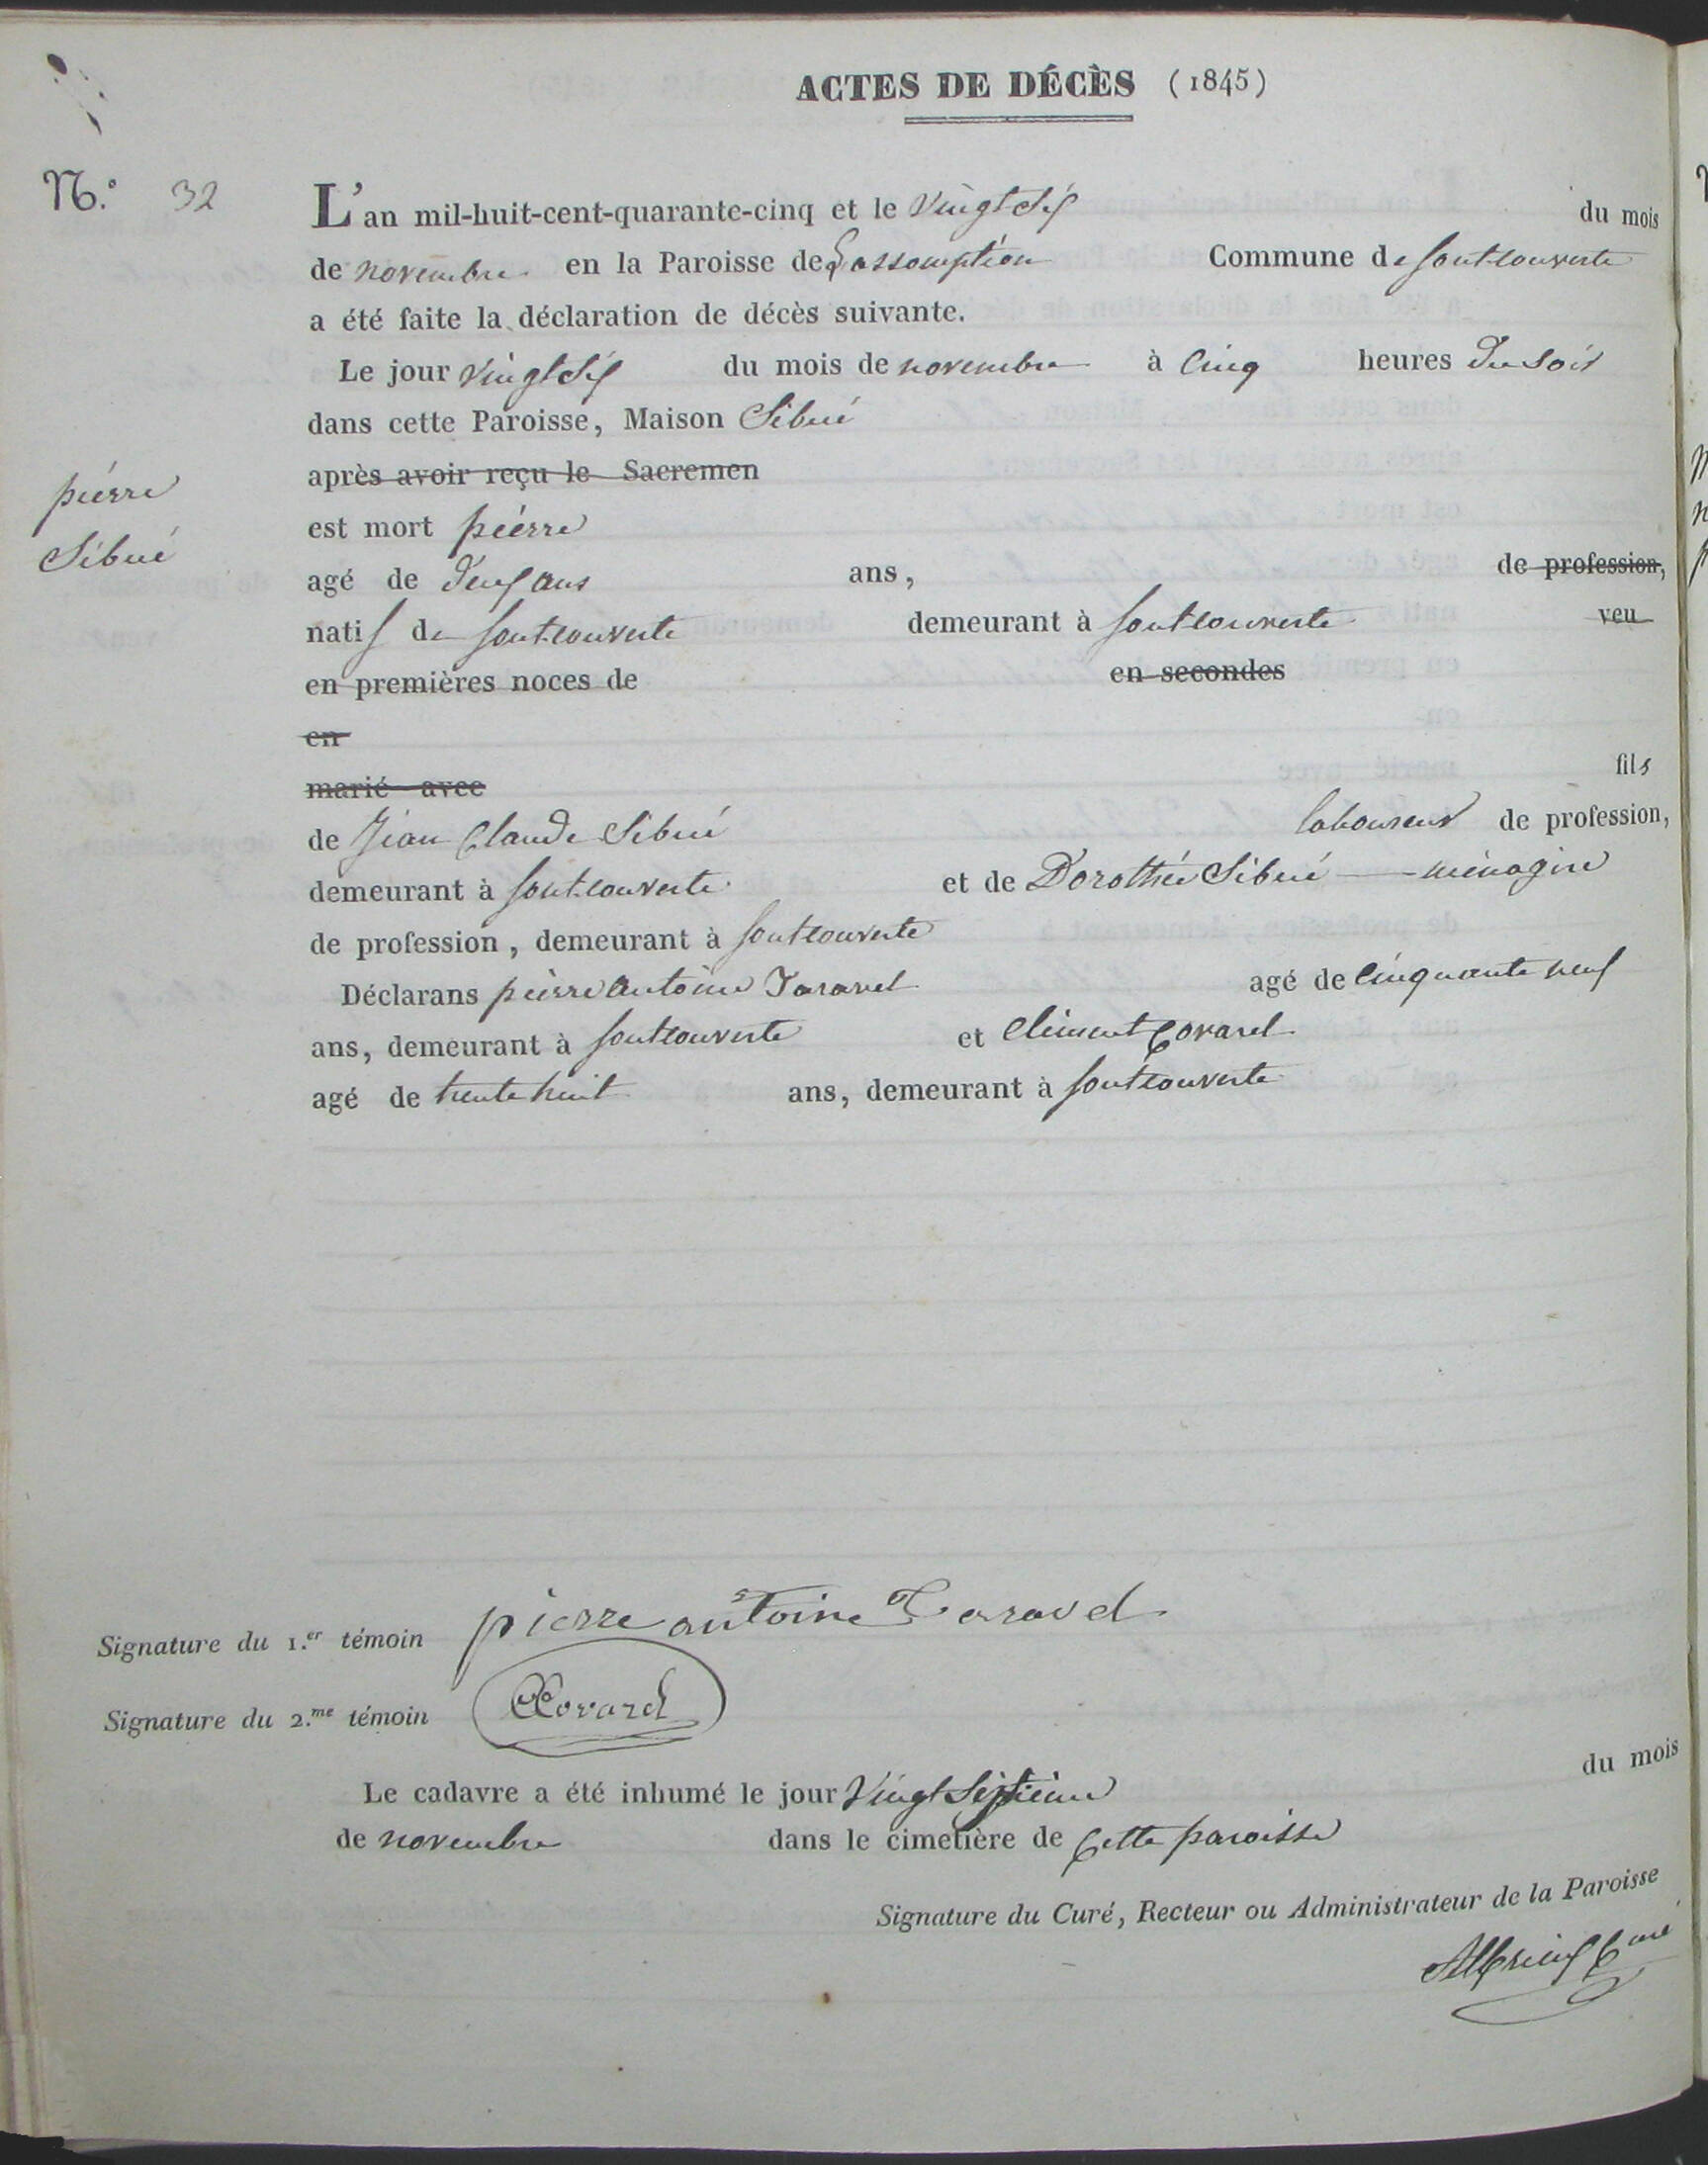 ACTES DE DÉCÈS (1845)
N.° 32
L'an mil-huit-cent-quarante-cinq et le vingt six du mois
de novembre en la Paroisse de Lassomption Commune de fontcouverte
a été faite la déclaration de décès suivante.
Le jour vingt six du mois de novembre à cinq heures du soir
dans cette Paroisse, Maison Sibué
après avoir reçu le Sacremen
pierre
Sibué
est mort pierre
agé de deux ans ans, de profession,
natif de fontcouverte demeurant à fontcouverte veu
en premières noces de en secondes
en
marié avec fils
de Jean Claude Sibué laboureur de profession,
demeurant à fontcouverte et de Dorothée Sibué ménagère
de profession, demeurant à fontcouverte
Déclarans pierre antoine Taravel agé de cinquante neuf
ans, demeurant à fontcouverte et clément Covarel
agé de trente huit ans, demeurant à fontcouverte
Signature du 1.er témoin pierre antoine Taravel
Signature du 2.me témoin Covarel
Le cadavre a été inhumé le jour vingt septième du mois
de novembre dans le cimetière de Cette paroisse
Signature du Curé, Recteur ou Administrateur de la Paroisse
Curé